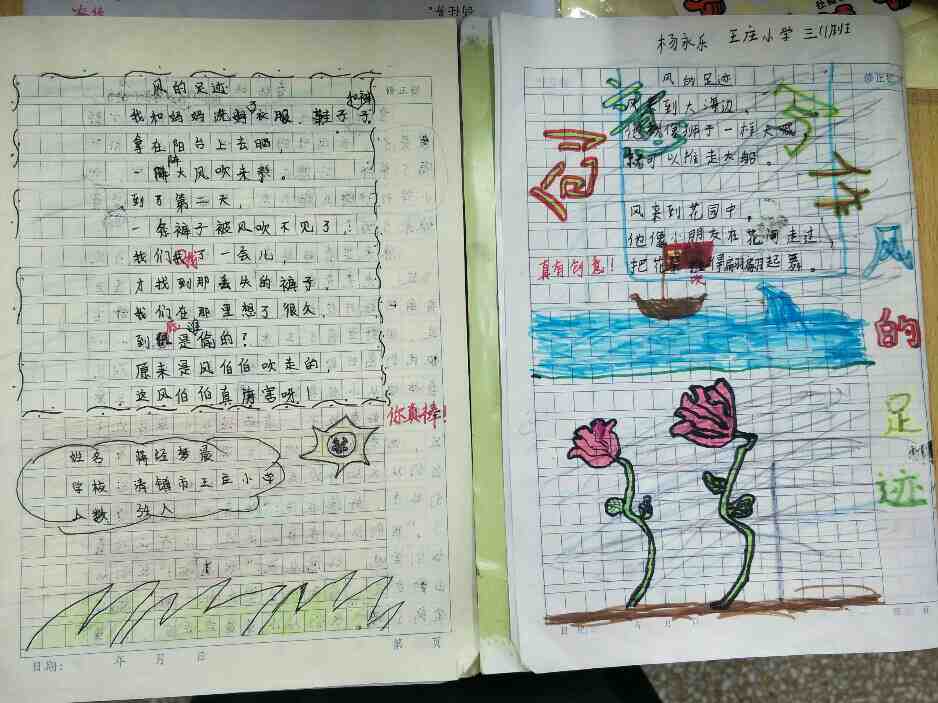 风的足迹
我和妈妈洗了衣服、鞋子和裤子
拿在阳台上去晒，
一阵大风吹来
到了第二天，
一条裤子被风吹不见了，
我们找了一会儿，
才找到那丢失的裤子
我们在那里想了很久
到底是谁偷的？
原来是风伯伯吹走的，
这风伯伯真厉害呀！
你真棒！
姓名：蒋经梦晨
学校：清镇市王庄小学
人数：34人
日期： 年 月 日
第 页
杨永乐 王庄小学 三(1)班
修正栏
风的足迹
风来到大海边，
他就像狮子一样大喊
就可以推走大船。
风来到花园中，
他像小朋友在花间走过，
把花 得翩翩起舞。
真有创意！
创意写作
风的足迹